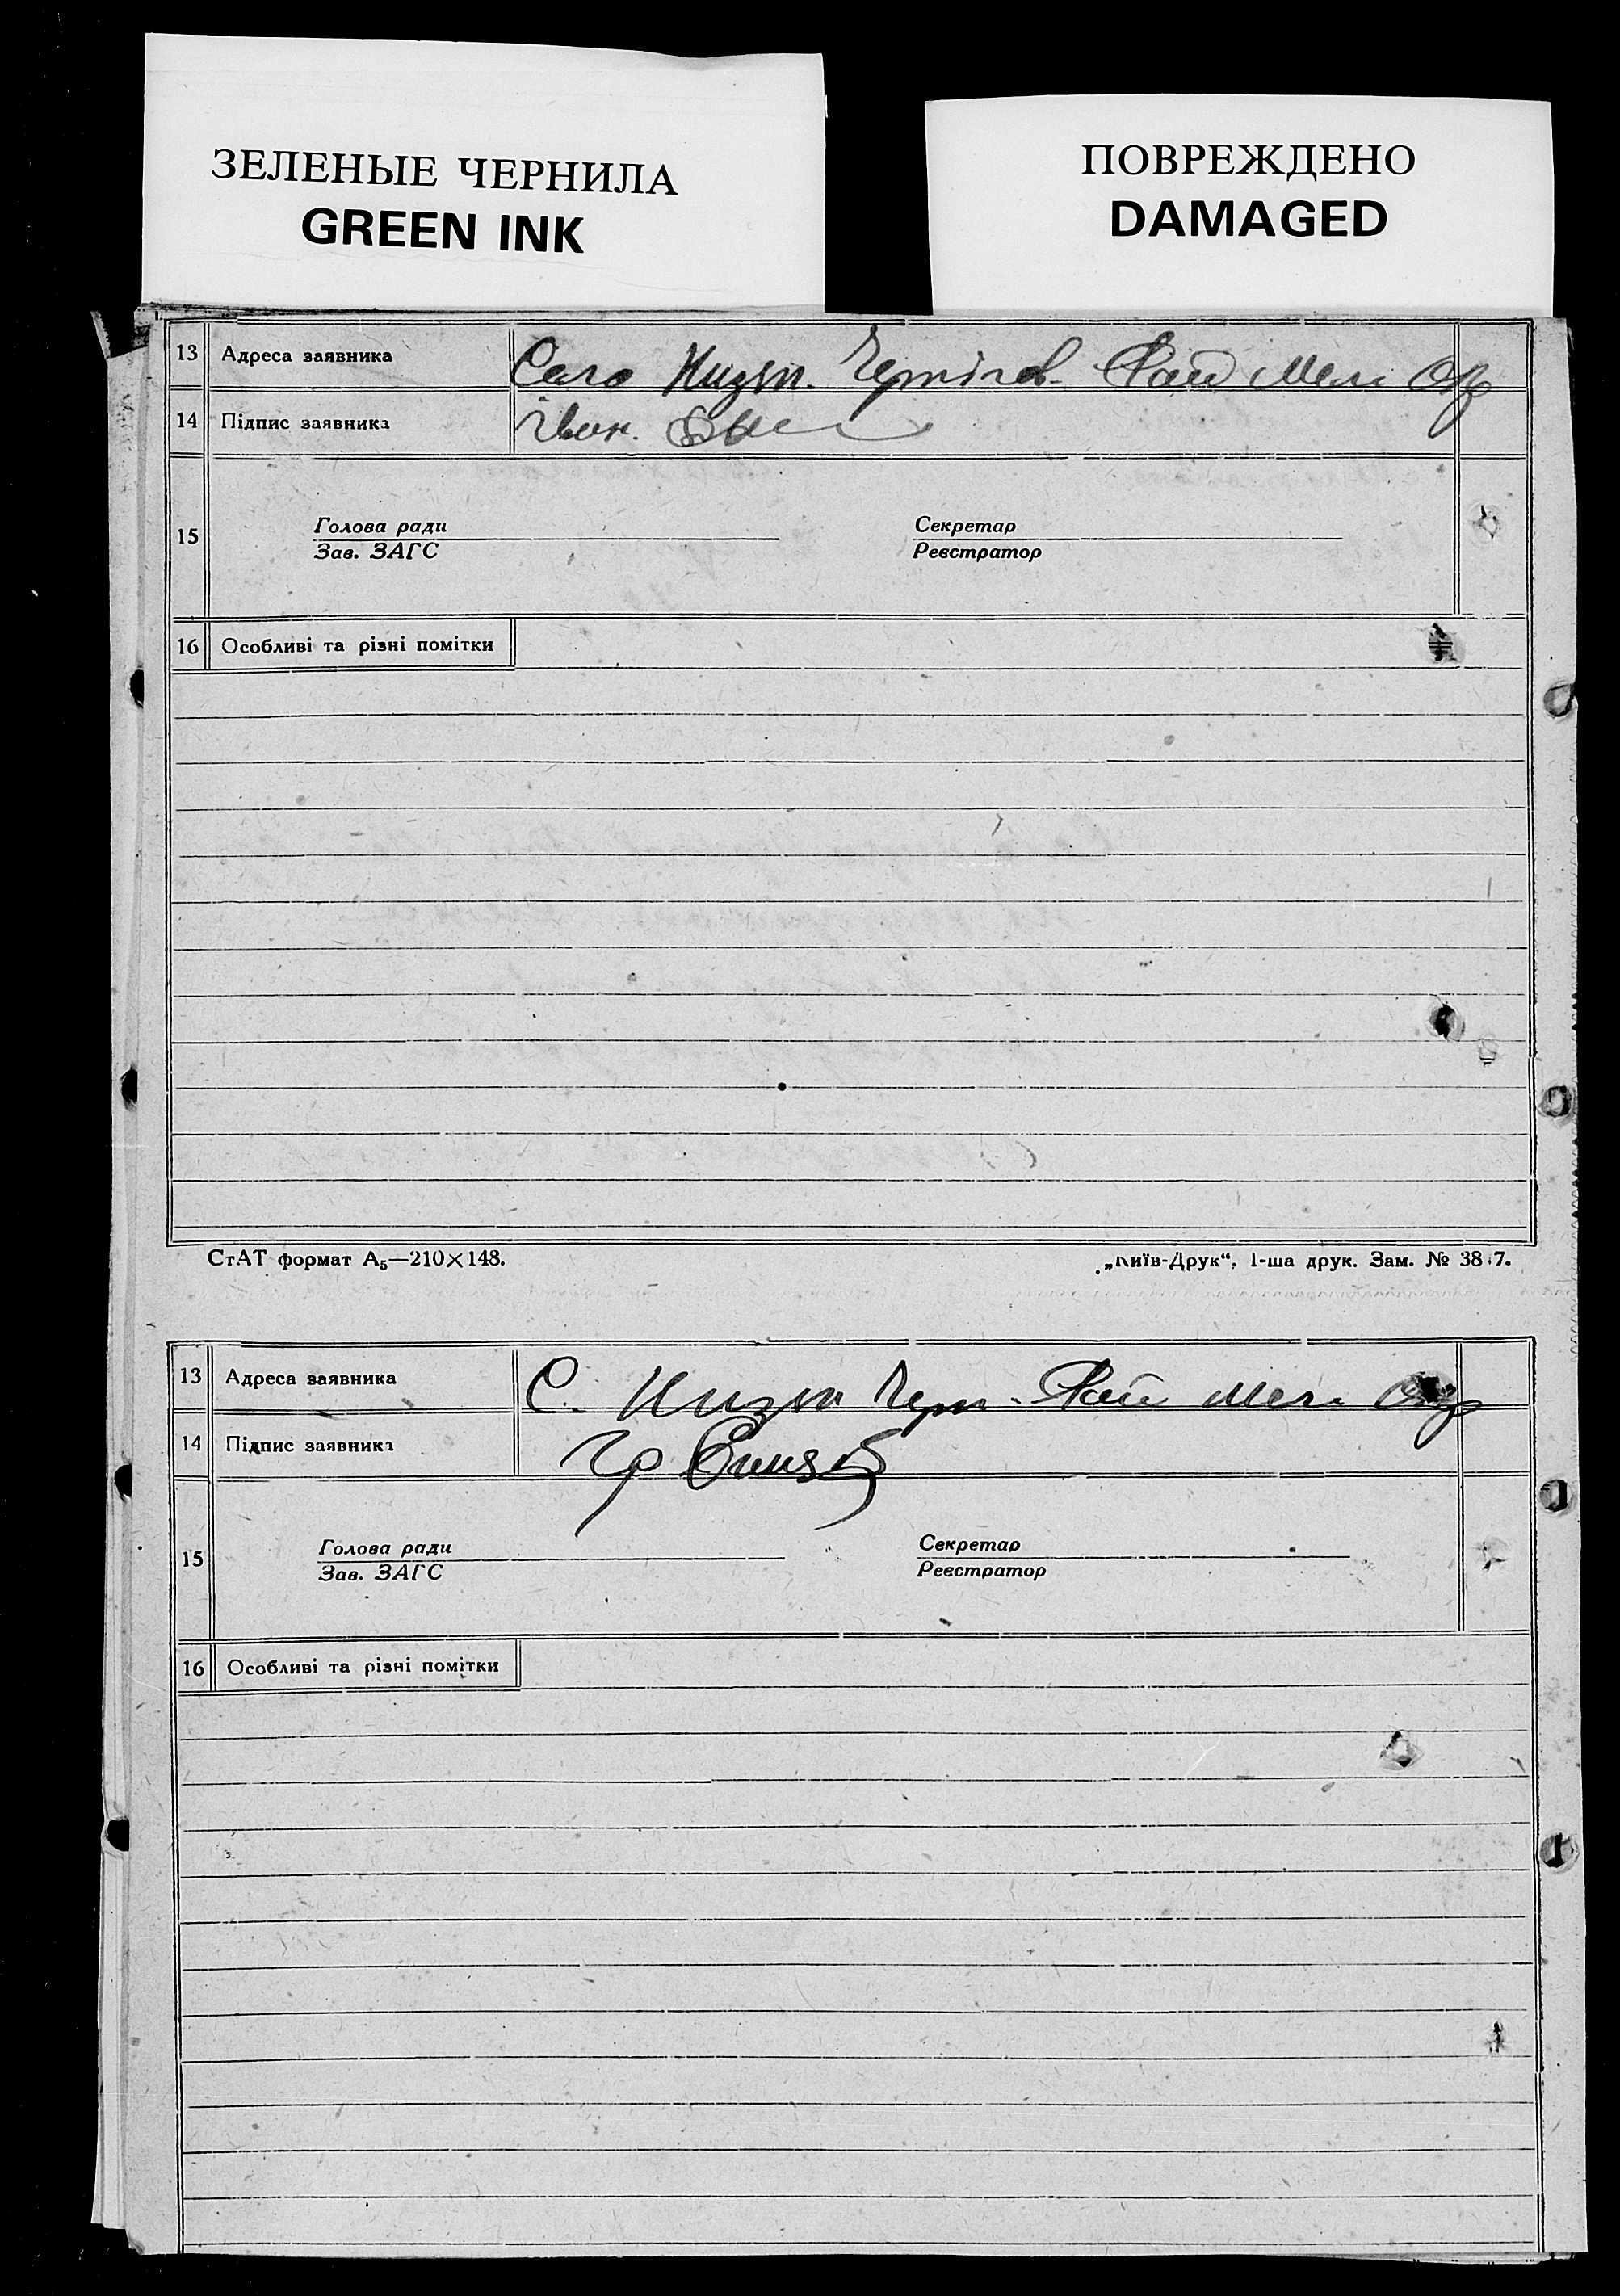 ЗЕЛЕНЫЕ ЧЕРНИЛА
GREEN INK
ПОВРЕЖДЕНО
DAMAGED
13 Адреса заявника Село Низян. Чернігов. Рай Мел. Окр
14 Підпис заявника Іван.
15 Голова ради Секретар
Зав. ЗАГС Реєстратор
16 Особливі та різні помітки
СтАТ формат А₅—210×148. „Київ-Друк“, 1-ша друк. Зам. №
13 Адреса заявника С. Низян Черн. Рай Мел. Окр
14 Підпис заявника Гр
15 Голова ради Секретар
Зав. ЗАГС Реєстратор
16 Особливі та різні помітки